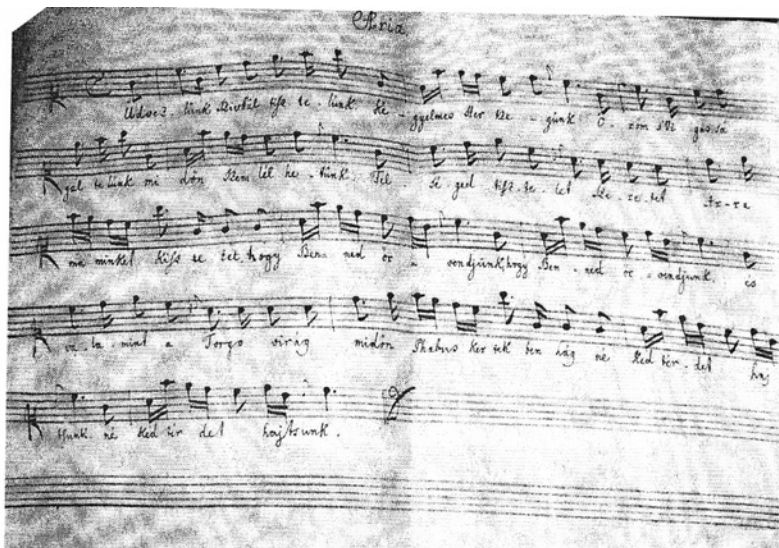 Aria
Üdvez- lünk Szivbül tisz te- lünk Ke- gyelmes Her tze- günk Ö- röm s Vi gassá
gal te lünk mi dön Szem lél he- tünk Fel- sé ged tisz- te- let Sze- re- tet ar- ra
ma minket kisz te tet, hogy Ben- ned ör- vendjünk, hogy Ben- ned ör- vendjunk. és
va- la- mint a Torgo virág midön Phabus ker tek ben hág né ked tér- det haj
tsunk né ked tér det hajtsunk.